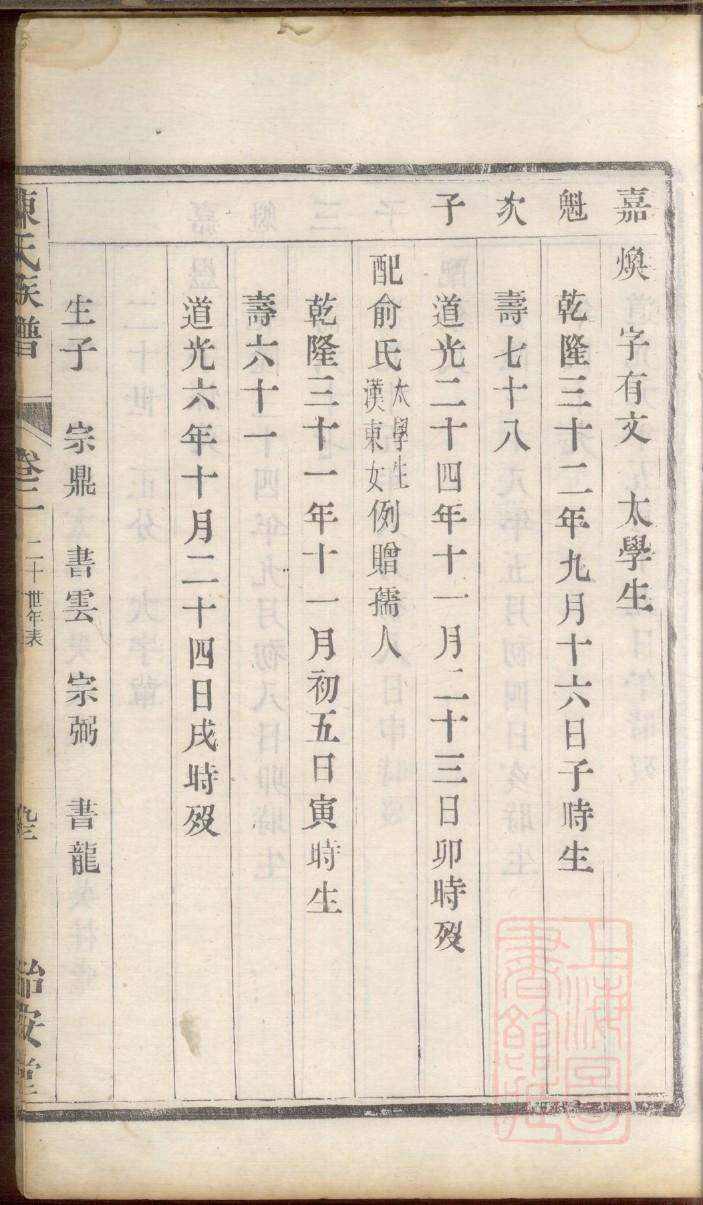 嘉煥　字有文　太學生
魁　乾隆三十二年九月十六日子時生
次　壽七十八
子　道光二十四年十一月二十三日卯時歿
配俞氏太學生漢東女例贈孺人
乾隆三十一年十一月初五日寅時生
壽六十一
道光六年十月二十四日戌時歿
生子　宗鼎　書雲　宗弼　書龍
陳氏族譜　卷二　二十世年表　治安堂
上海圖書館藏